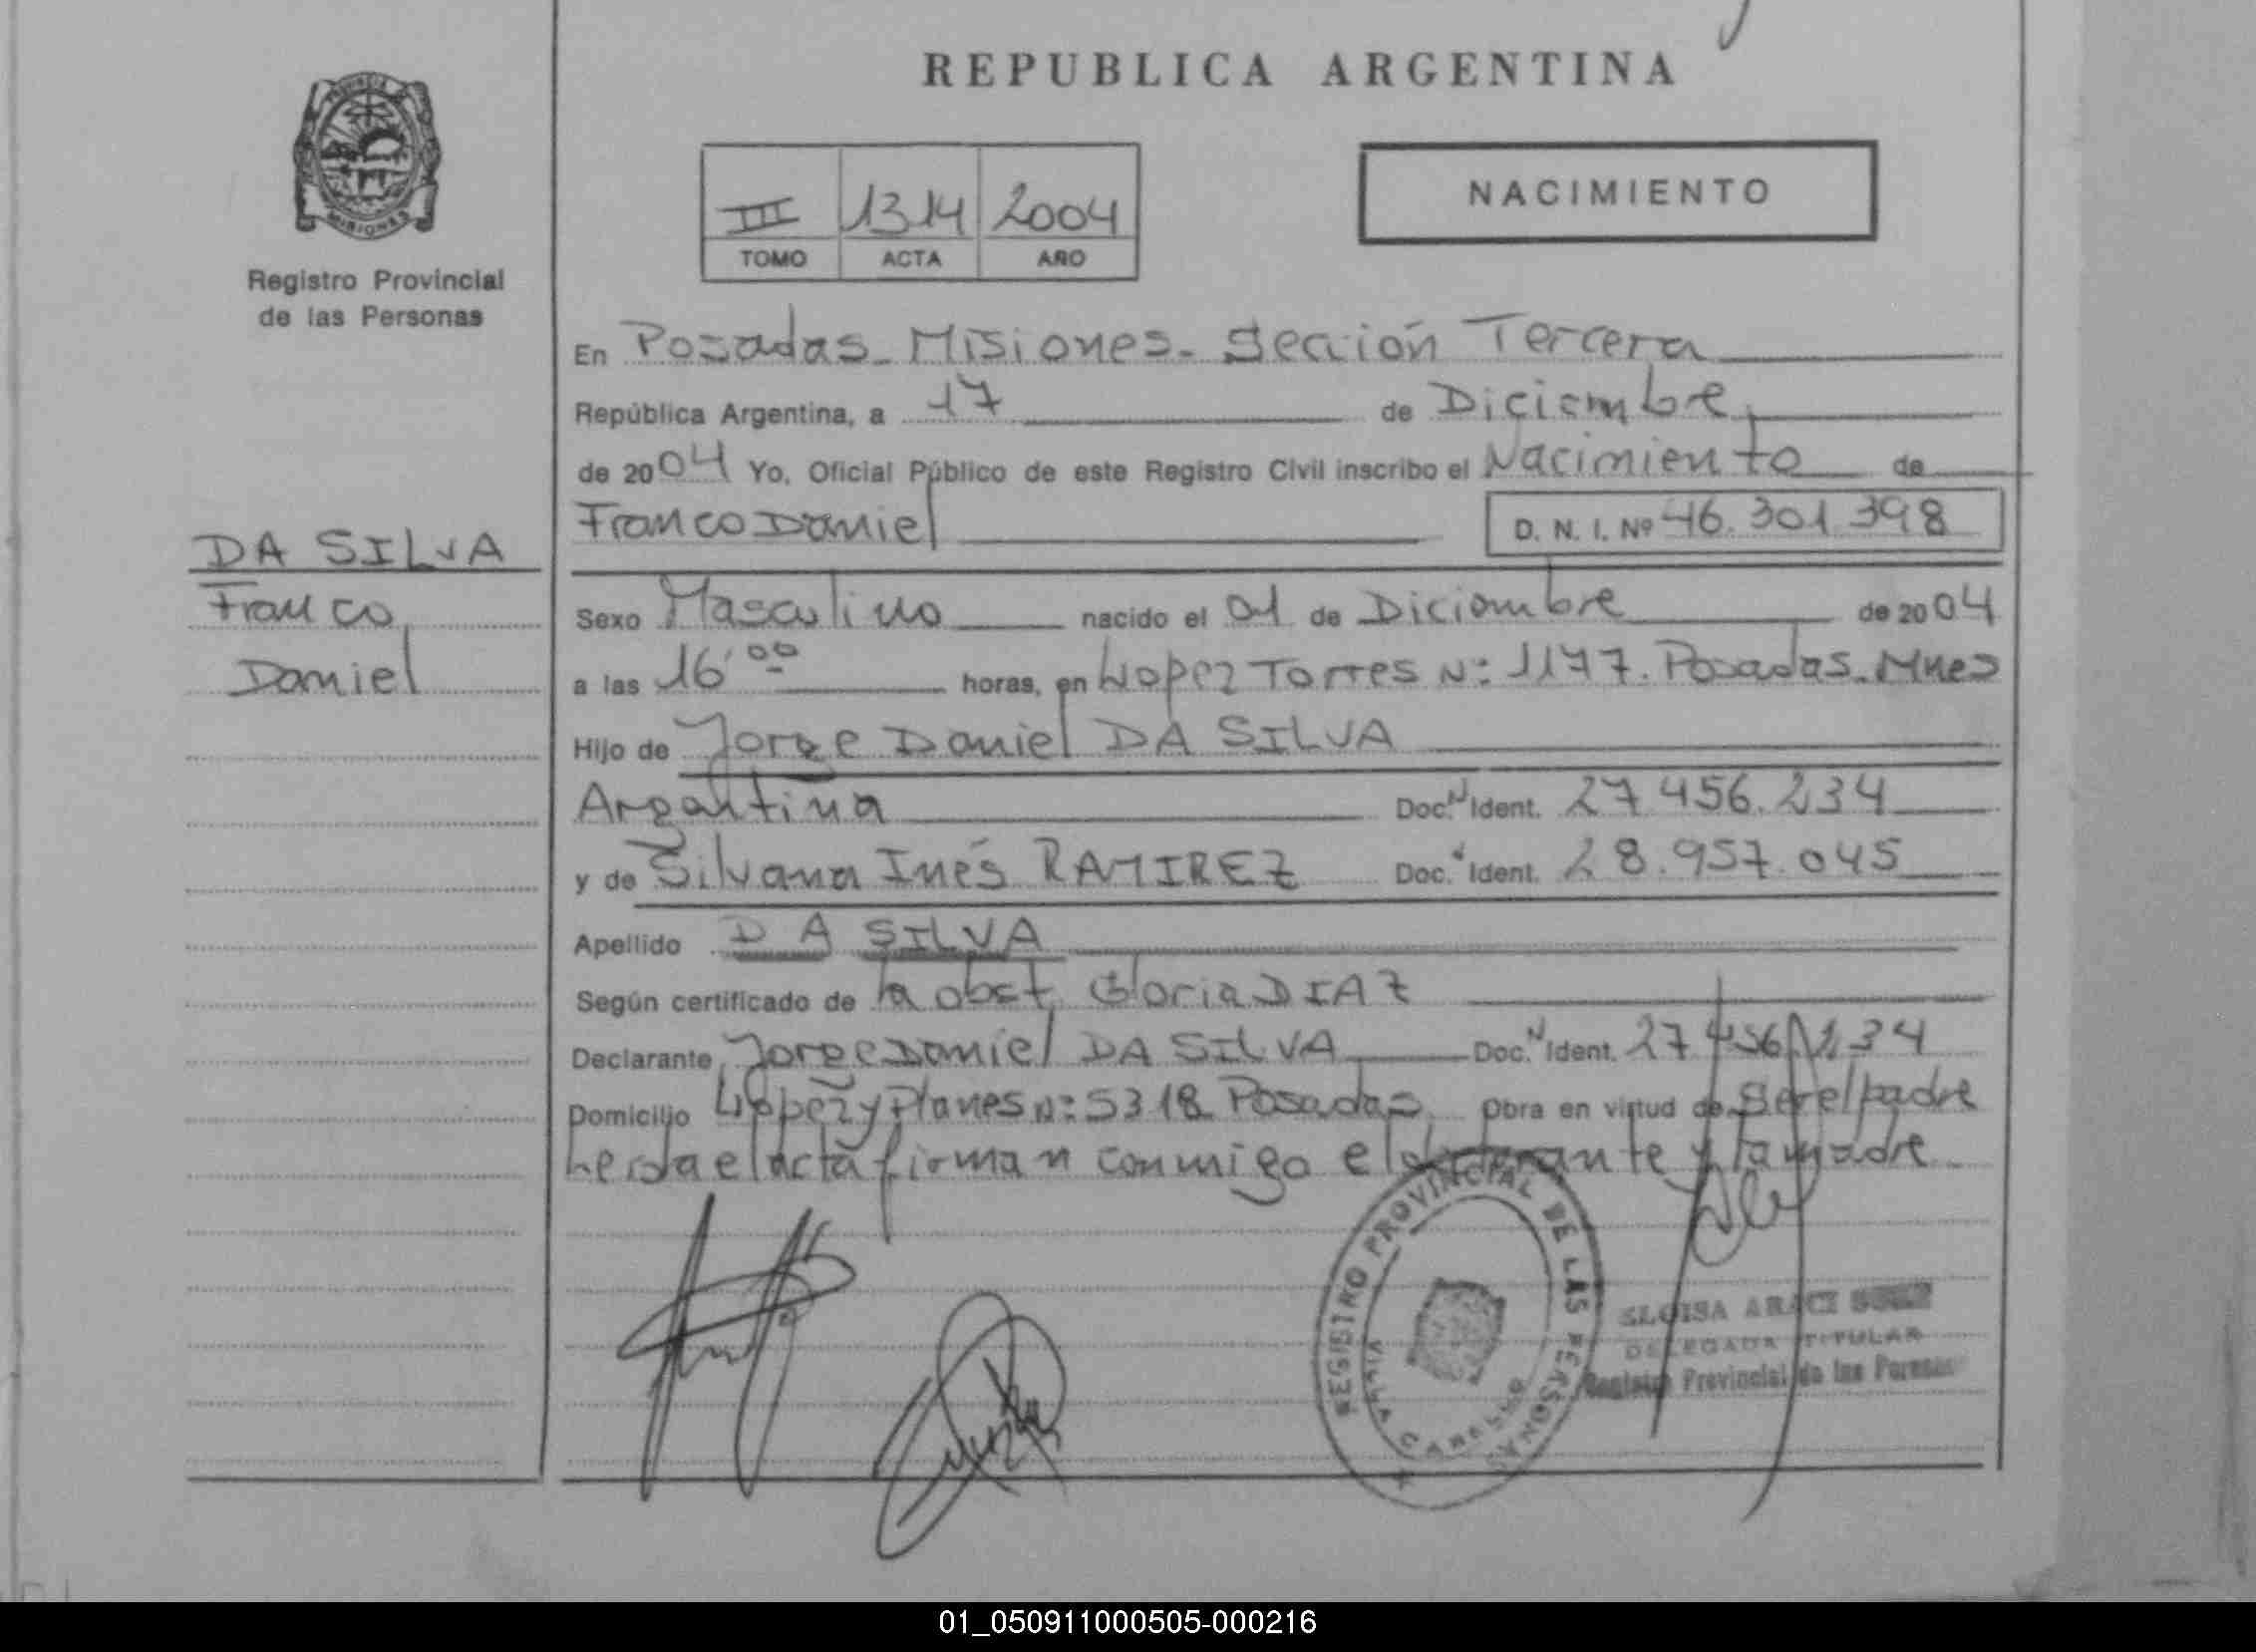 REPUBLICA ARGENTINA
PROVINCIA DE
MISIONES
Registro Provincial
de las Personas
III 1314 2004
TOMO ACTA AÑO
NACIMIENTO
En Posadas - Misiones - Sección Tercera
República Argentina, a 17 de Diciembre
de 2004 Yo, Oficial Público de este Registro Civil inscribo el Nacimiento de
Franco Daniel D. N. I. Nº 46.301.398
DA SILVA
Franco
Daniel
Sexo Masculino nacido el 01 de Diciembre de 2004
a las 16:00 horas, en Lopez Torres Nº 1177. Posadas - Mnes
Hijo de Jorge Daniel DA SILVA
Argentina Doc. N Ident. 27.456.234
y de Silvana Inés RAMIREZ Doc. Ident. 28.957.045
Apellido DA SILVA
Según certificado de la obst. Gloria DIAZ
Declarante Jorge Daniel DA SILVA Doc. N Ident. 27.456.234
Domicilio López y Planes Nº 5318 Posadas Obra en virtud de Ser el padre
Leida el acta firman conmigo el declarante y la madre
REGISTRO PROVINCIAL DE LAS PERSONAS
DELEGADA TITULAR
Registro Provincial de las Personas
01_050911000505-000216